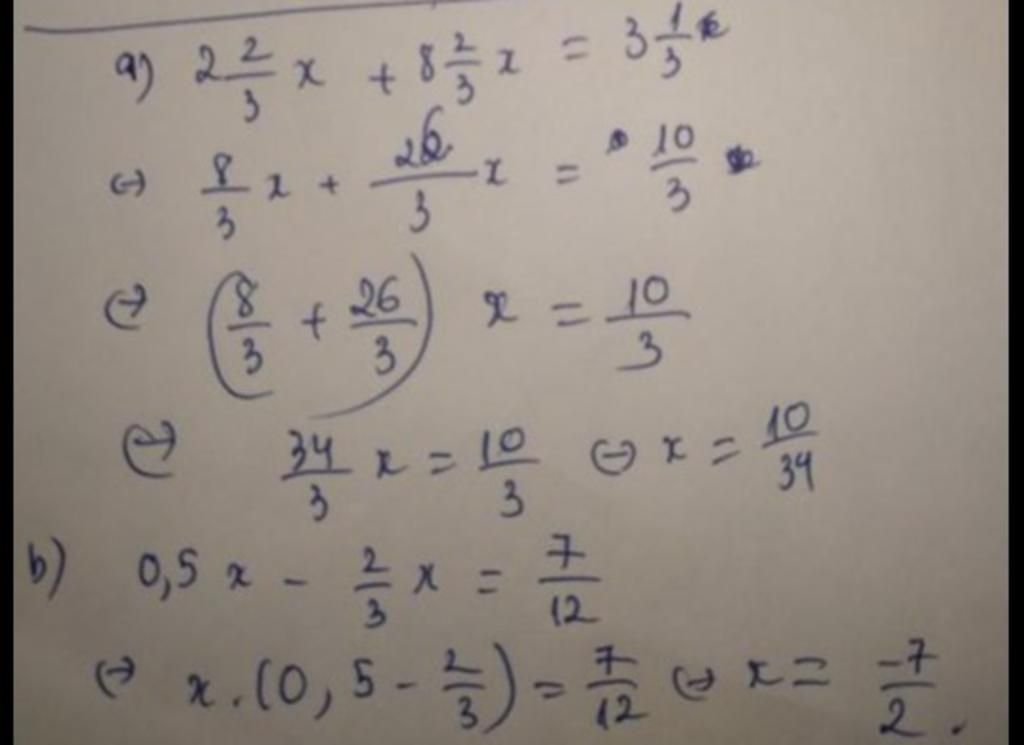 a) 2 2/3 x + 8 2/3 x = 3 1/3
⇔ 8/3 x + 26/3 x = 10/3
⇔ (8/3 + 26/3) x = 10/3
⇔ 34/3 x = 10/3 ⇔ x = 10/34
b) 0,5 x - 2/3 x = 7/12
⇔ x . (0,5 - 2/3) = 7/12 ⇔ x = -7/2 .